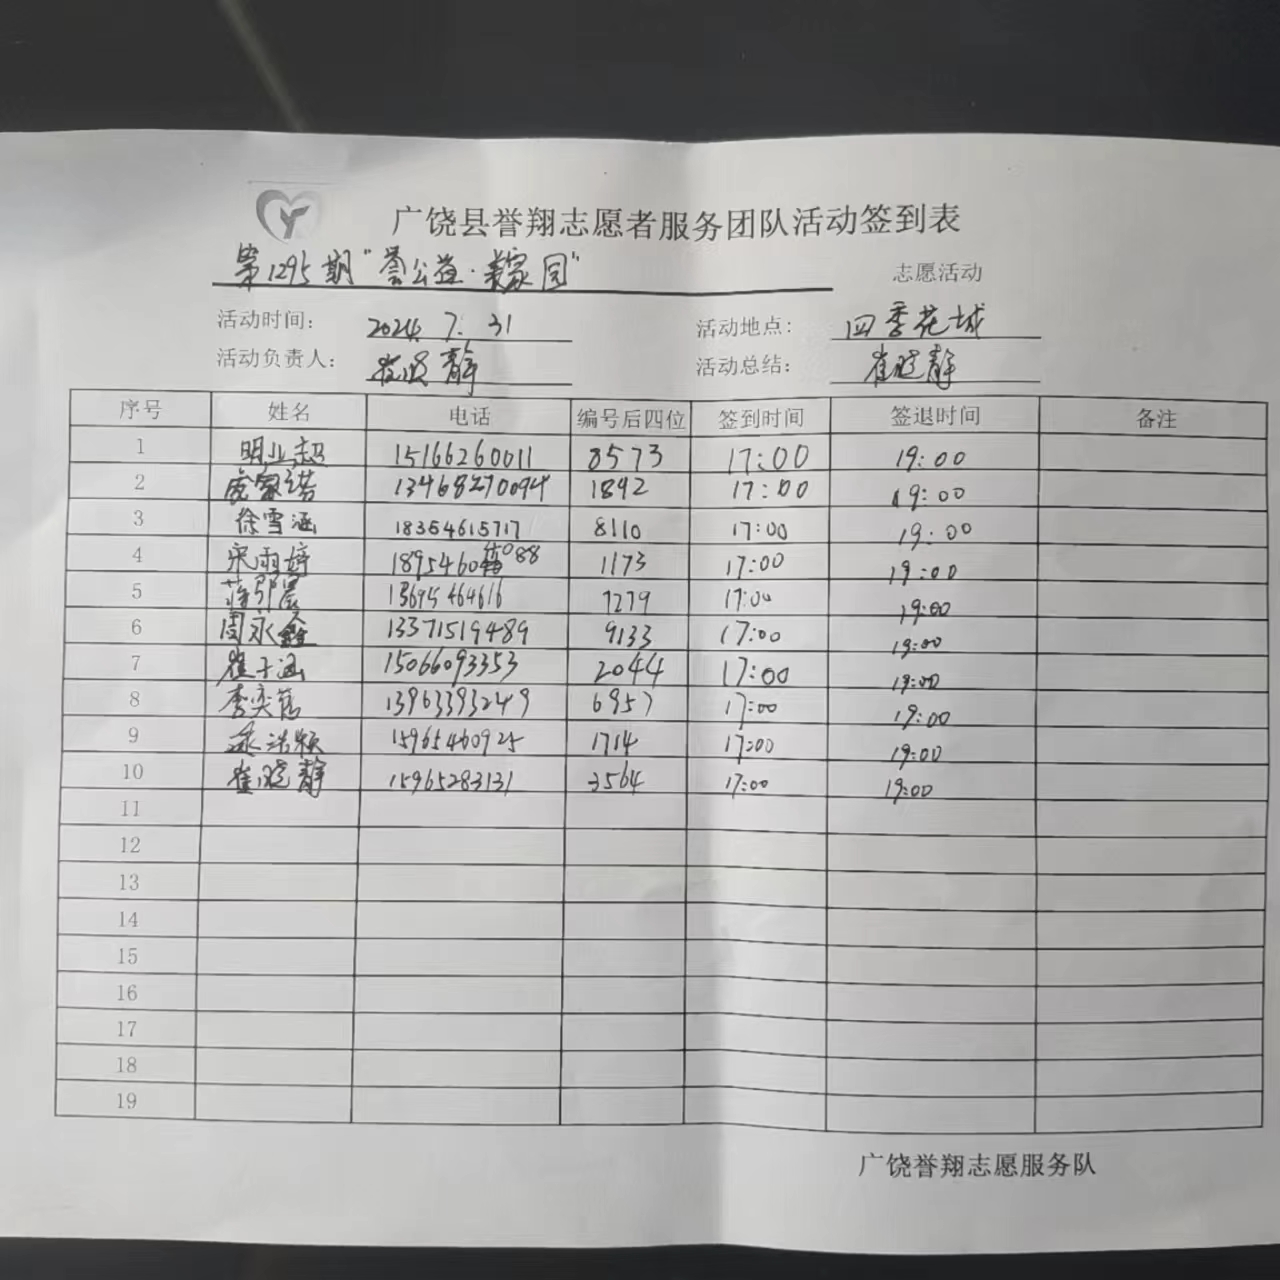 广饶县誉翔志愿者服务团队活动签到表
第1295期"誉公益·美家园" 志愿活动
活动时间: 2024. 7. 31 活动地点: 四季花城
活动负责人: 崔晓静 活动总结: 崔晓静
序号 姓名 电话 编号后四位 签到时间 签退时间 备注
1 明业超 15166260011 8573 17:00 19:00
2 13468270094 1892 17:00 19:00
3 徐雪涵 18354615717 8110 17:00 19:00
4 宋雨婷 1895460 088 1173 17:00 19:00
5 13695464616 7279 17:00 19:00
6 周永鑫 13371519489 9133 17:00 19:00
7 崔子涵 15066093353 2044 17:00 19:00
8 李奕 13963393249 6957 17:00 19:00
9 15965460925 1714 17:00 19:00
10 崔晓静 15965283131 3564 17:00 19:00
11
12
13
14
15
16
17
18
19
广饶誉翔志愿服务队